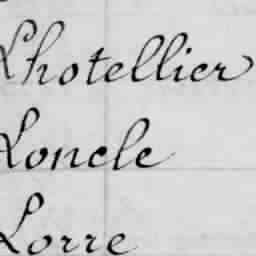 Lhotellier
Loncle
Lorre